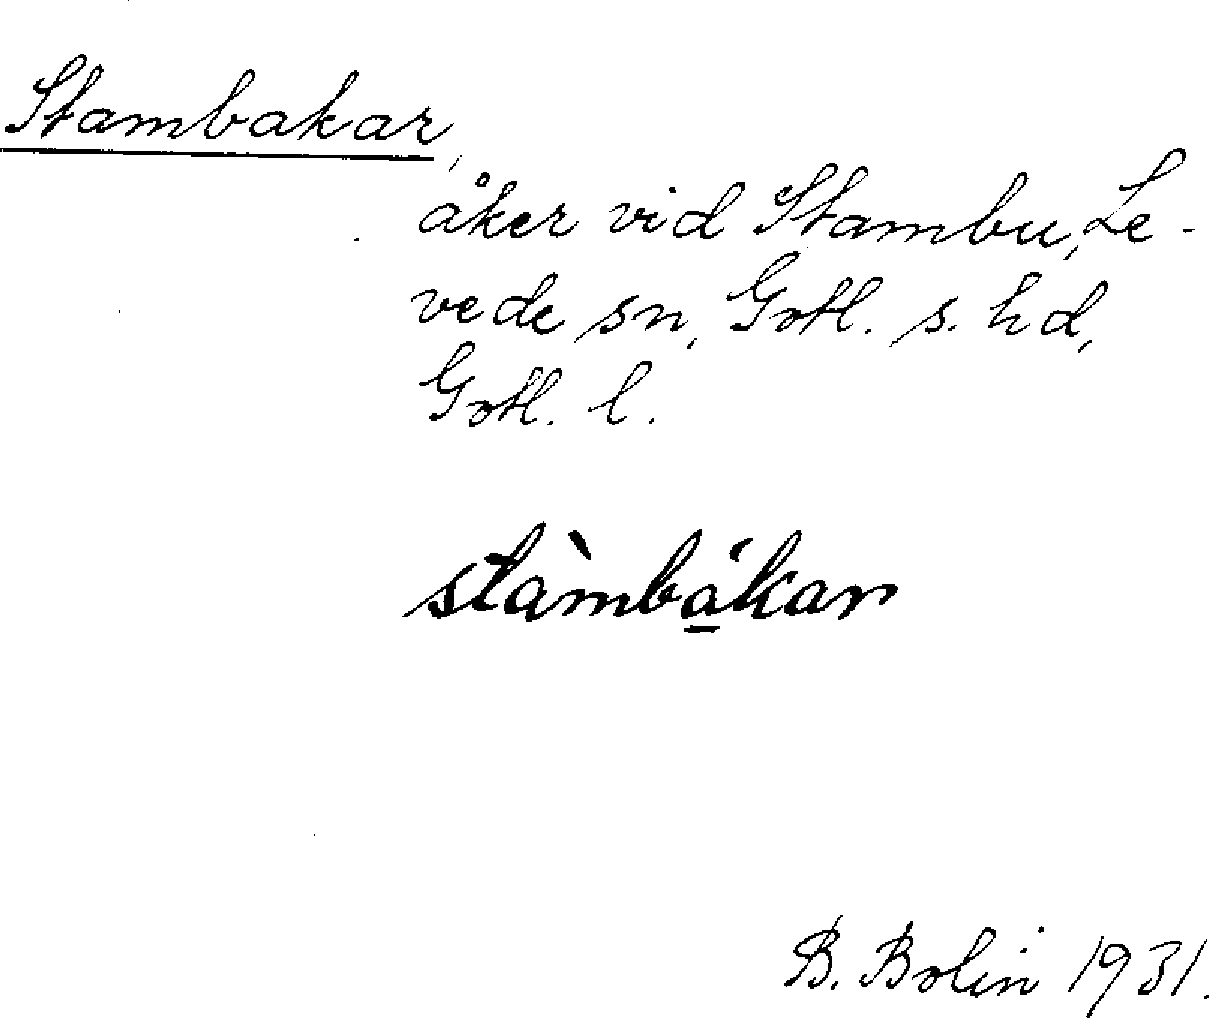 Stambakar,
åker vid Stambu, Le-
vede sn, Gotl. s. hd,
Gotl. l.
stàmbá̱kar
B. Bolin 1931.